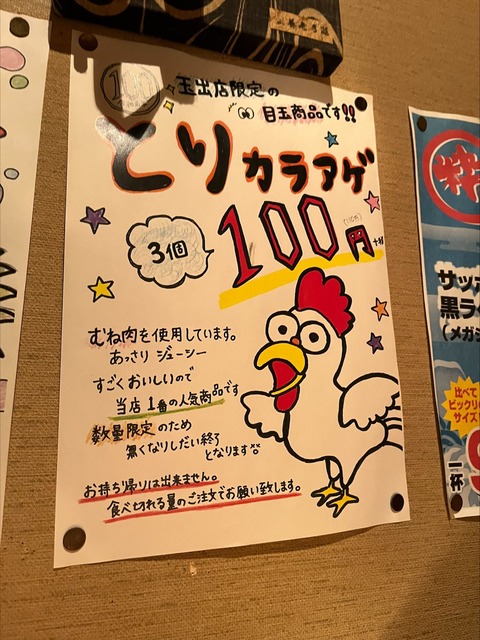 100
玉出店限定の
目玉商品です!!
とりカラアゲ
3個
100円
むね肉を使用しています。
あっさり ジューシー
すごくおいしいので
当店 1番の人気商品です
数量限定のため
無くなりしだい終了
となります
お持ち帰りは出来ません。
食べ切れる量のご注文でお願い致します。
サッポ
黒ラ
(メガジ
比べて
ビックリの
サイズ!
一杯